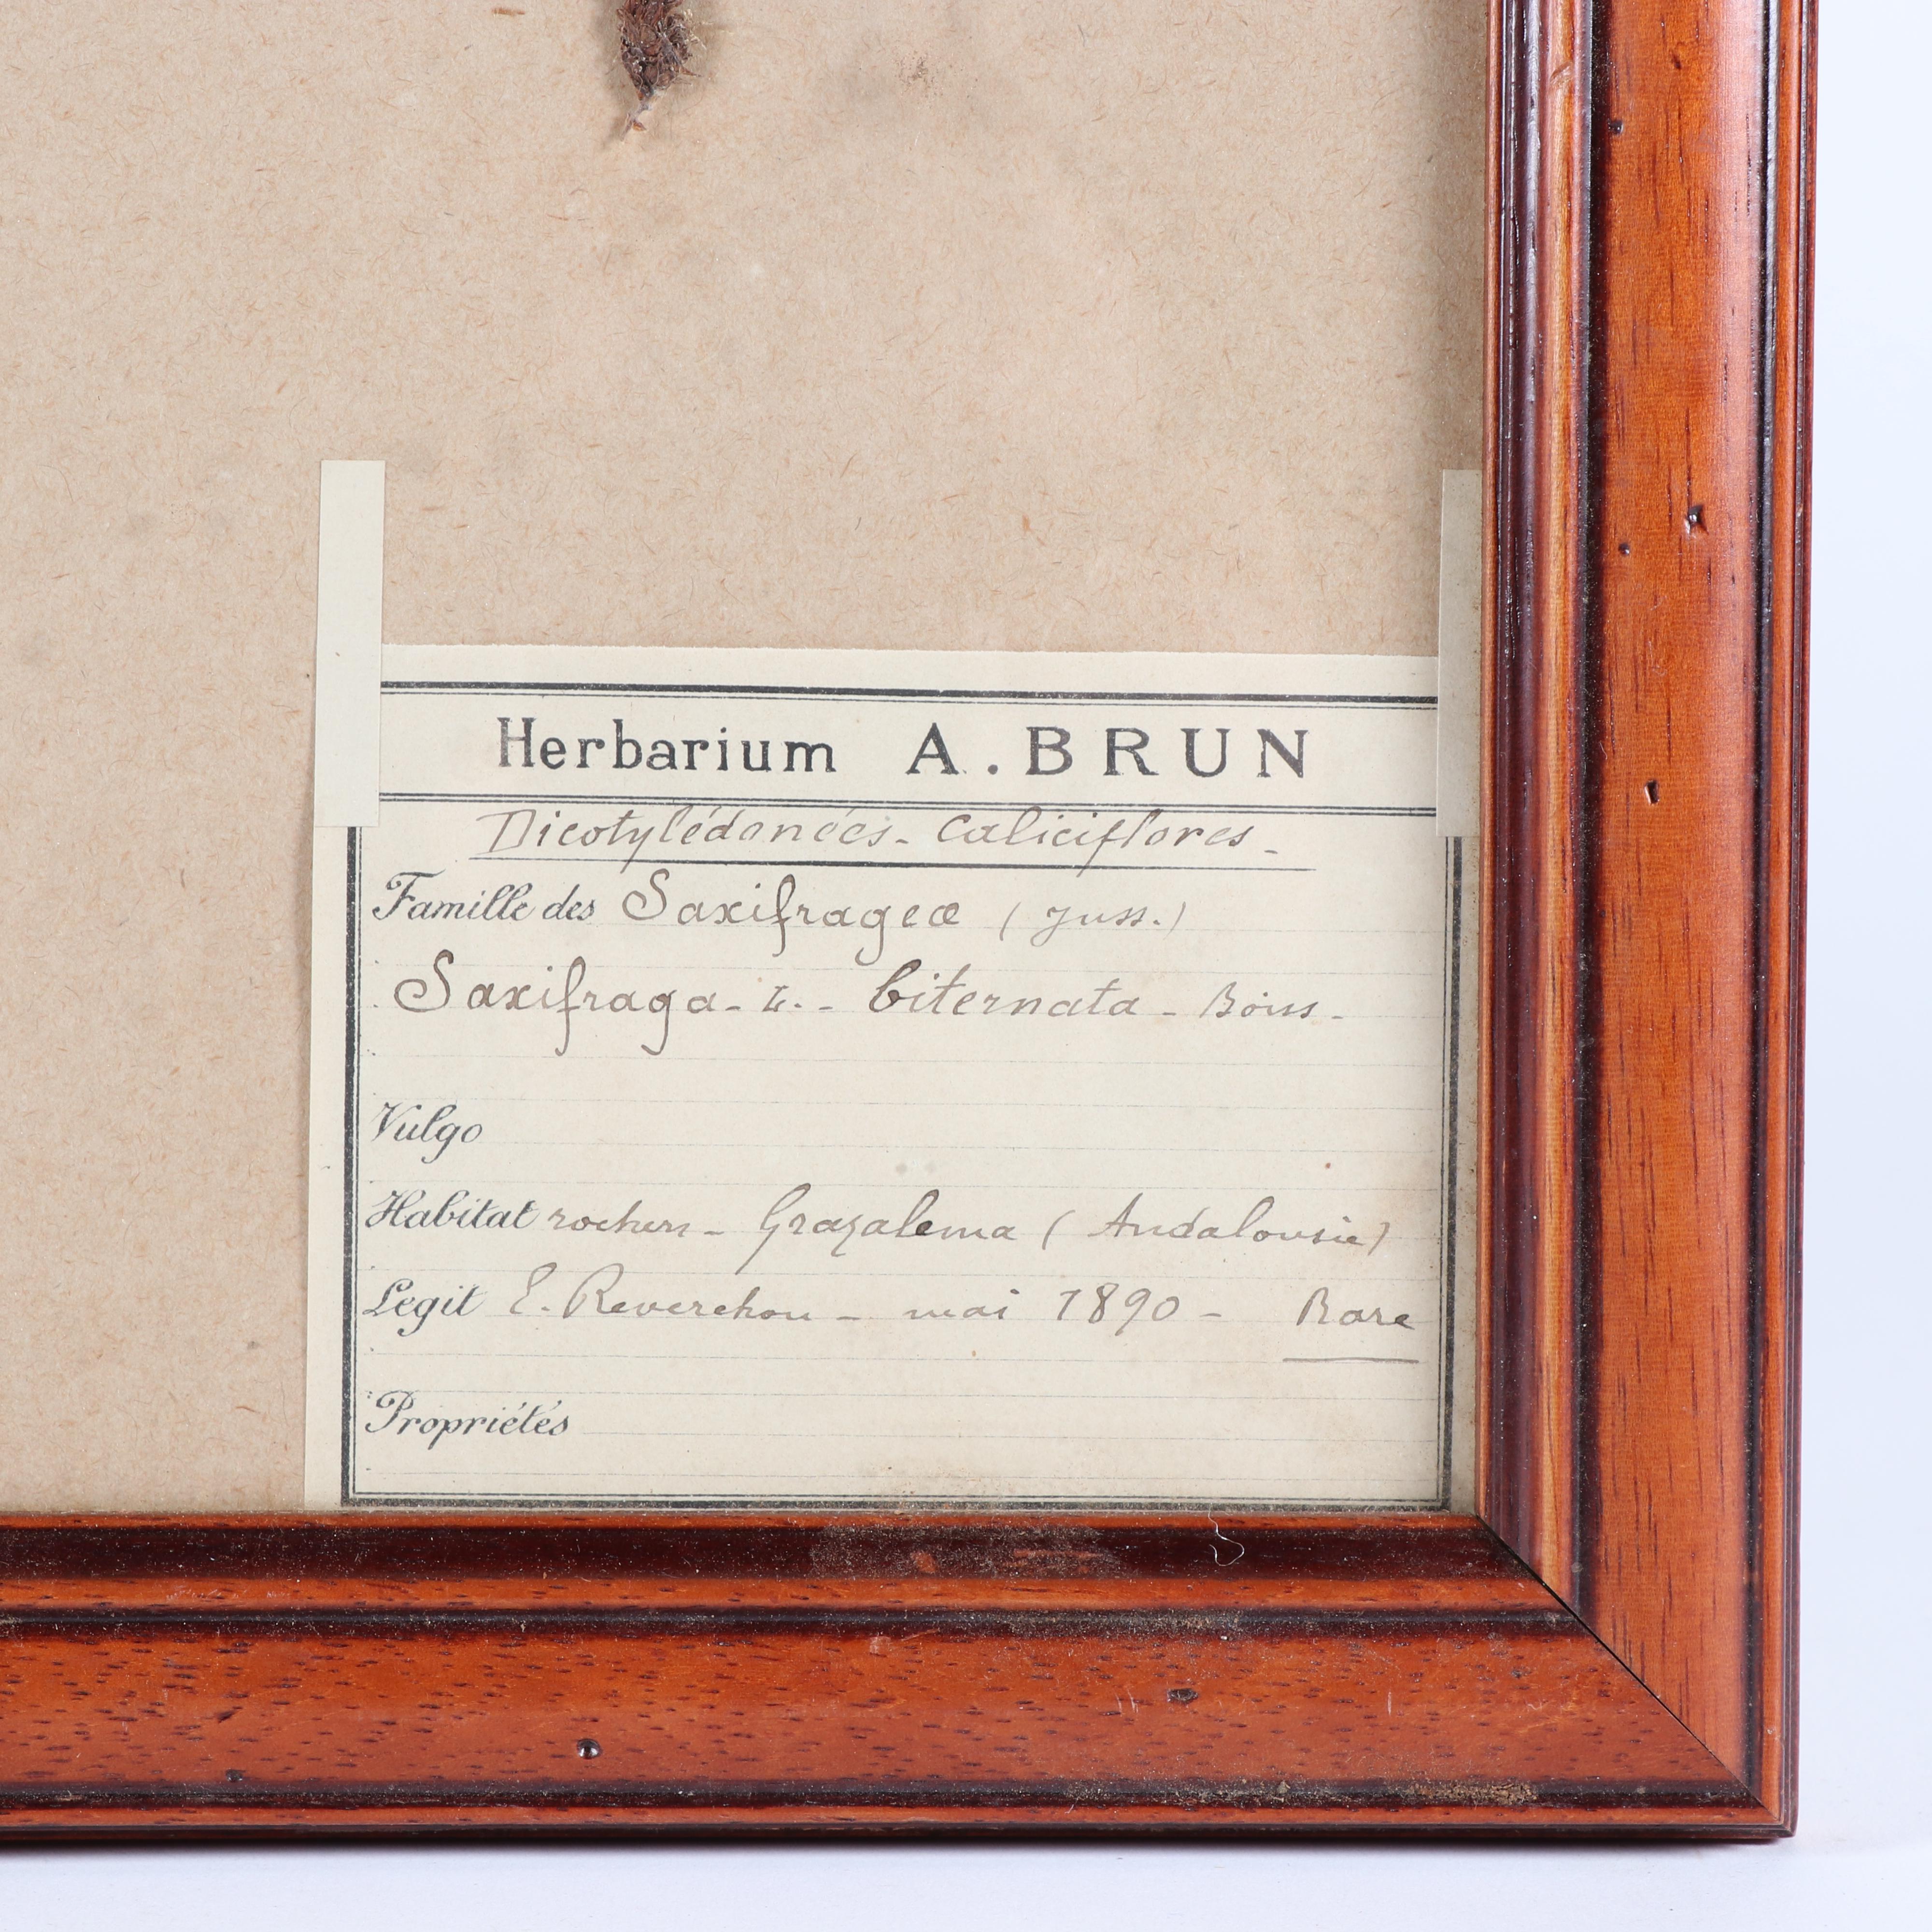 Herbarium A. BRUN
Dicotylédonées - Caliciflores -
Famille des Saxifrageæ (Juss.)
Saxifraga - L. - biternata - Boiss -
Vulgo
Habitat rochers - Grazalema (Andalousie)
Legit E. Reverchon - mai 1890 - Rare
Propriétés